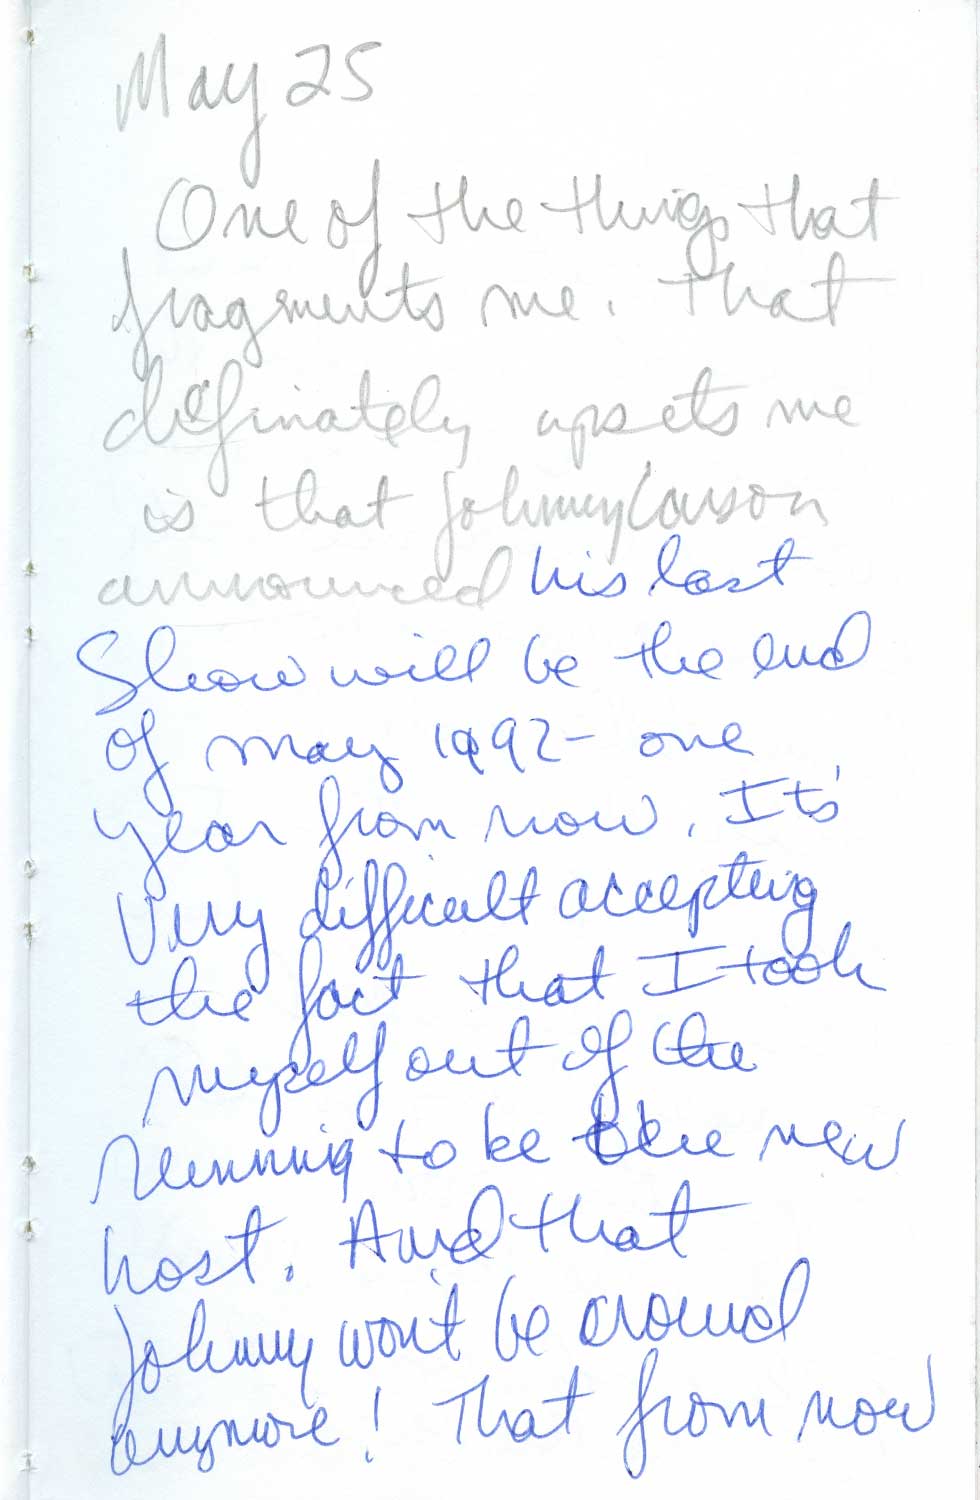 May 25
One of the things that
fragments me. That
definately upsets me
is that Johnny Carson
announced his last
Show will be the end
of may 1992 - one
year from now. It's
Very difficult accepting
the fact that I took
myself out of the
running to be the new
host. And that
Johnny won't be around
anymore! That from now